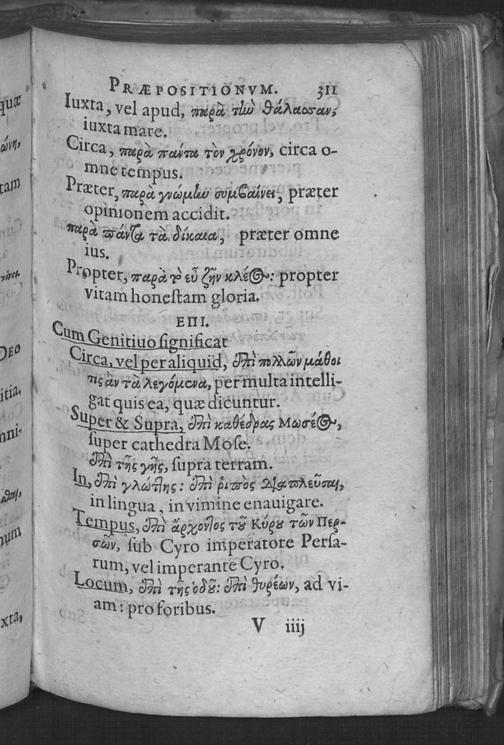 PRÆPOSITIONVM. 311
Iuxta, vel apud, παρὰ τὴν θάλασσαν,
iuxta mare.
Circa, παρὰ πάντα τὸν χρόνον, circa o-
mne tempus.
Præter, παρὰ γνώμην συμβαίνει, præter
opinionem accidit.
παρὰ πάντα τὰ δίκαια, præter omne
ius.
Propter, παρὰ τὸ εὖ ζῆν κλέος: propter
vitam honestam gloria.
ΕΠΙ.
Cum Genitiuo significat
Circa, vel per aliquid, ἐπὶ πολλῶν μάθοι
τις ἂν τὰ λεγόμενα, per multa intelli-
gat quis ea, quæ dicuntur.
Super & Supra, ἐπὶ καθέδρας Μωσέος,
super cathedra Mose.
ἐπὶ τῆς γῆς, supra terram.
In, ἐπὶ γλώττης: ἐπὶ ῥιπὸς διαπλεῦσαι,
in lingua, in vimine enauigare.
Tempus, ἐπὶ ἄρχοντος τοῦ Κύρου τῶν Περ-
σῶν, sub Cyro imperatore Persa-
rum, vel imperante Cyro.
Locum, ἐπὶ τῆς ὁδοῦ: ἐπὶ θυρέων, ad vi-
am: pro foribus.
V iiij
quæ
tam
DEO
itia.
mni-
num
xta,